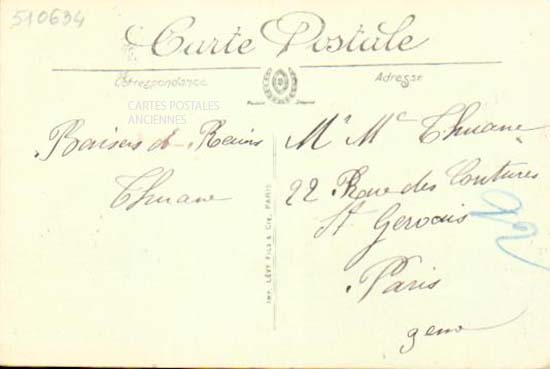 510634
Carte Postale
Correspondance
Adresse
CARTES POSTALES
ANCIENNES
Baisers de Reims
Thuane
Mr Me Thuane
22 Rue des Coutures
St Gervais
Paris
3eme
IMP. LÉVY FILS & CIE, PARIS